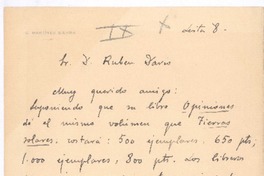 IX X costa 8.
Sr. D. Ruben Dario
Muy querido amigo:
Suponiendo que su libro Opiniones
dé el mismo volumen que Tierras
solares, costará: 500 ejemplares. 650 pts;
1.000 ejemplares, 800 pts. Los libreros